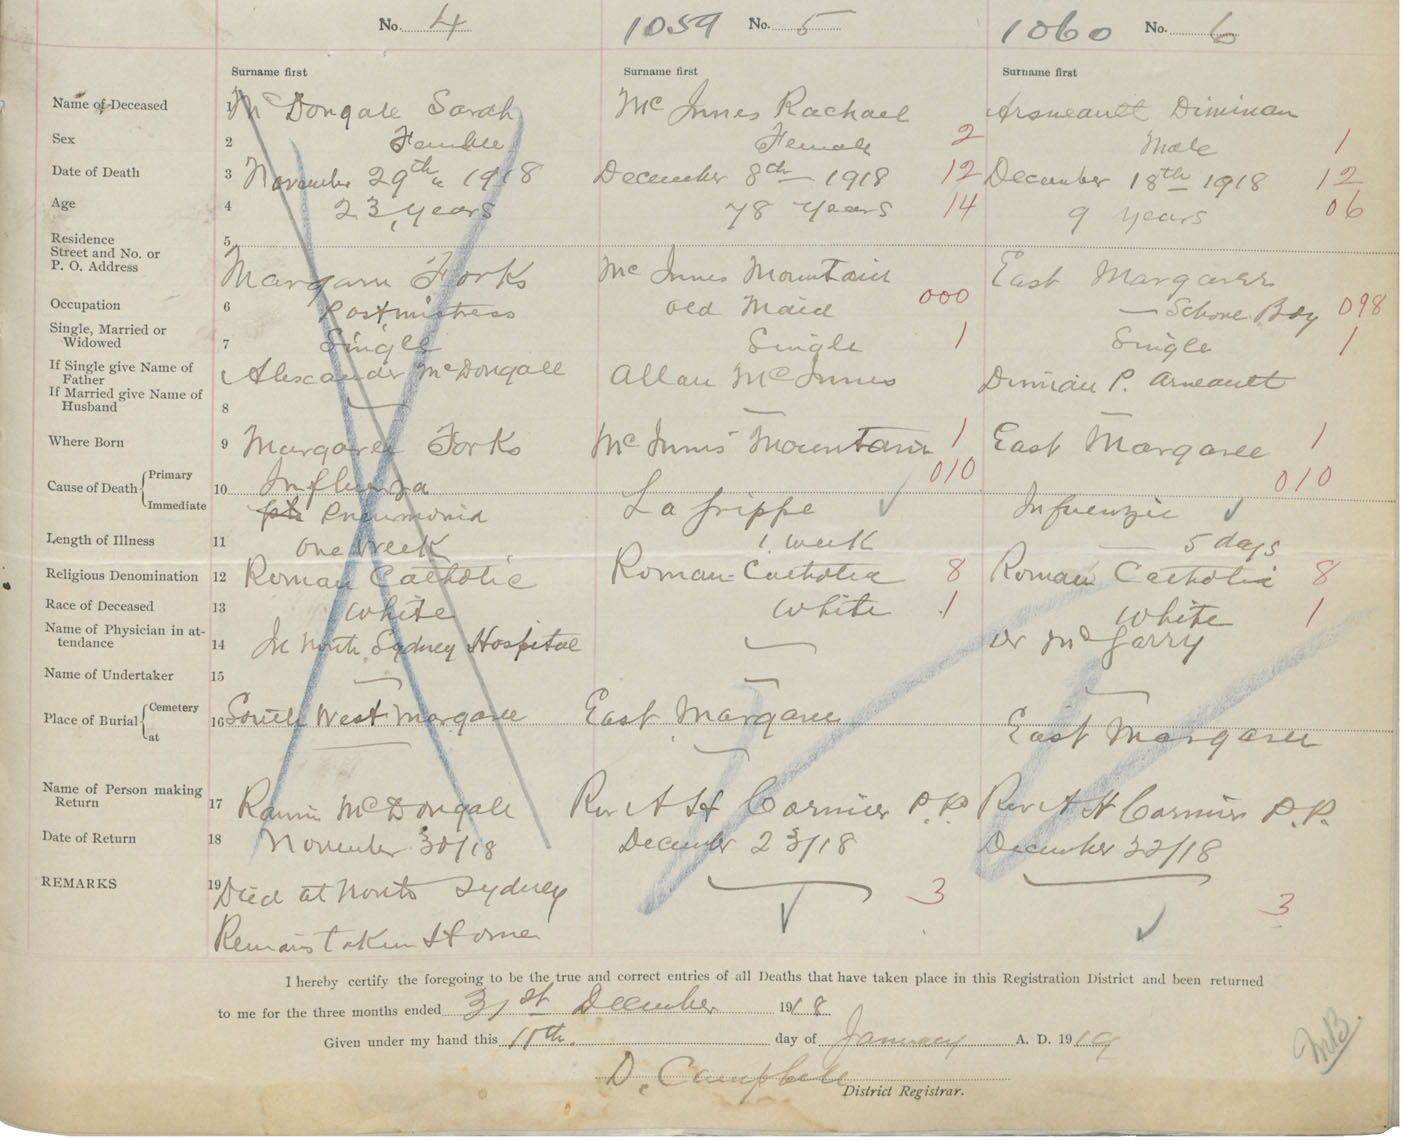 No. 4 1059 No. 5 1060 No. 6
Surname first Surname first Surname first
Name of Deceased 1 McDongale Sarah McInnes Rachael Arsneault Diminan
Sex 2 Female Female 2 Male 1
Date of Death 3 November 29th 1918 December 8th 1918 12 December 18th 1918 12
Age 4 23 years 78 years 14 9 years 06
Residence
Street and No. or
P. O. Address 5 Margaree Forks McInnes Mountain East Margaree
Occupation 6 Postmistress old Maid 000 School Boy 098
Single, Married or
Widowed 7 Single Single 1 Single 1
If Single give Name of
Father Alexander McDongall Allan McInnes Dimian P. Arneault
If Married give Name of
Husband 8
Where Born 9 Margaree Forks McInnis Mountain 1 East Margaree 1
Cause of Death Primary 10 Influenza 010 010
Immediate Pneumonia La Grippe Infuenzie
Length of Illness 11 one week 1 week 5 days
Religious Denomination 12 Roman Catholic Roman Catholic 8 Roman Catholic 8
Race of Deceased 13 White White 1 White 1
Name of Physician in at-
tendance 14 In North Sydney Hospital Dr McGarry
Name of Undertaker 15
Place of Burial Cemetery 16 South West Margaree East Margaree East Margaree
at
Name of Person making
Return 17 McDongale Rev A H Cormier P.P. Rev A H Cormier P.P.
Date of Return 18 November 30/18 December 23/18 December 22/18
REMARKS 19 Died at North Sydney 3 3
Remains taken Home
I hereby certify the foregoing to be the true and correct entries of all Deaths that have taken place in this Registration District and been returned
to me for the three months ended 31st December 1918
Given under my hand this 11th. day of January A. D. 1919
D. Campbell
District Registrar.